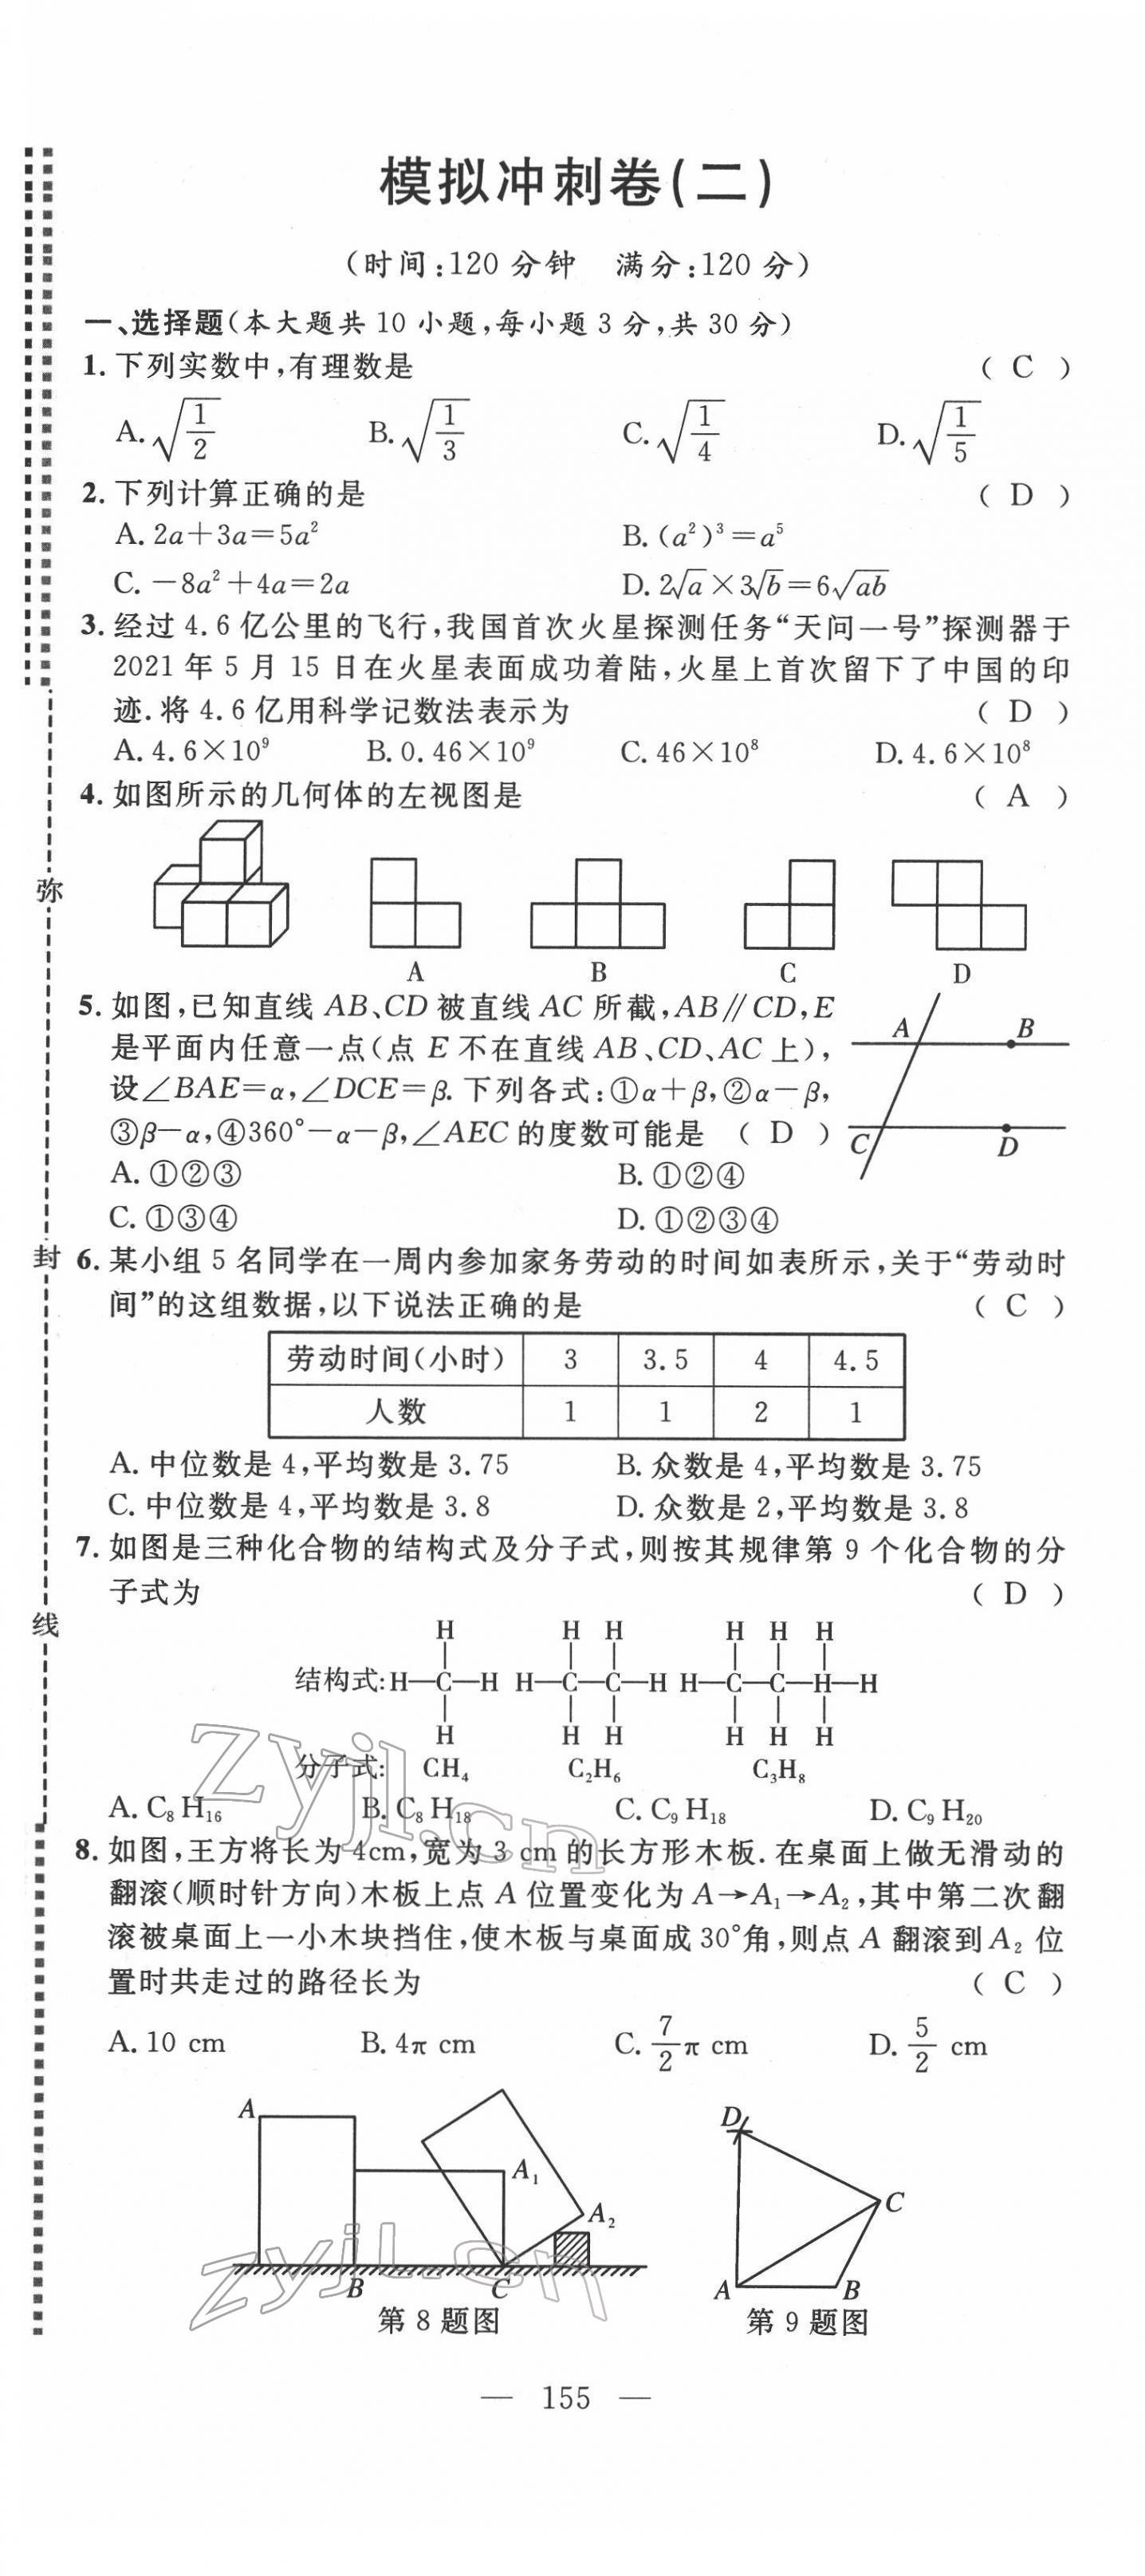 模拟冲刺卷(二)
(时间:120 分钟　满分:120 分)
一、选择题(本大题共 10 小题,每小题 3 分,共 30 分)
1. 下列实数中,有理数是 ( C )
A. √(1/2)　B. √(1/3)　C. √(1/4)　D. √(1/5)
2. 下列计算正确的是 ( D )
A. 2a＋3a＝5a²　B. (a²)³＝a⁵
C. －8a²＋4a＝2a　D. 2√a×3√b＝6√ab
3. 经过 4.6 亿公里的飞行,我国首次火星探测任务“天问一号”探测器于
2021 年 5 月 15 日在火星表面成功着陆,火星上首次留下了中国的印
迹.将 4.6 亿用科学记数法表示为 ( D )
A. 4.6×10⁹　B. 0.46×10⁹　C. 46×10⁸　D. 4.6×10⁸
4. 如图所示的几何体的左视图是 ( A )
A　B　C　D
5. 如图,已知直线 AB、CD 被直线 AC 所截,AB∥CD,E
是平面内任意一点(点 E 不在直线 AB、CD、AC 上),
设∠BAE＝α,∠DCE＝β.下列各式:①α＋β,②α－β,
③β－α,④360°－α－β,∠AEC 的度数可能是 ( D )
A　B
C　D
A. ①②③　B. ①②④
C. ①③④　D. ①②③④
6. 某小组 5 名同学在一周内参加家务劳动的时间如表所示,关于“劳动时
间”的这组数据,以下说法正确的是 ( C )
劳动时间(小时)　3　3.5　4　4.5
人数　1　1　2　1
A. 中位数是 4,平均数是 3.75　B. 众数是 4,平均数是 3.75
C. 中位数是 4,平均数是 3.8　D. 众数是 2,平均数是 3.8
7. 如图是三种化合物的结构式及分子式,则按其规律第 9 个化合物的分
子式为 ( D )
H　H H　H H H
结构式:H—C—H　H—C—C—H　H—C—C—H—H
H　H H　H H H
分子式:　CH₄　C₂H₆　C₃H₈
A. C₈H₁₆　B. C₈H₁₈　C. C₉H₁₈　D. C₉H₂₀
8. 如图,王方将长为 4cm,宽为 3 cm 的长方形木板.在桌面上做无滑动的
翻滚(顺时针方向)木板上点 A 位置变化为 A→A₁→A₂,其中第二次翻
滚被桌面上一小木块挡住,使木板与桌面成 30°角,则点 A 翻滚到 A₂ 位
置时共走过的路径长为 ( C )
A. 10 cm　B. 4π cm　C. 7/2 π cm　D. 5/2 cm
A　A₁　A₂　B　C
第 8 题图
D　C　A　B
第 9 题图
— 155 —
弥
封
线
zyjl.cn
zyjl.cn